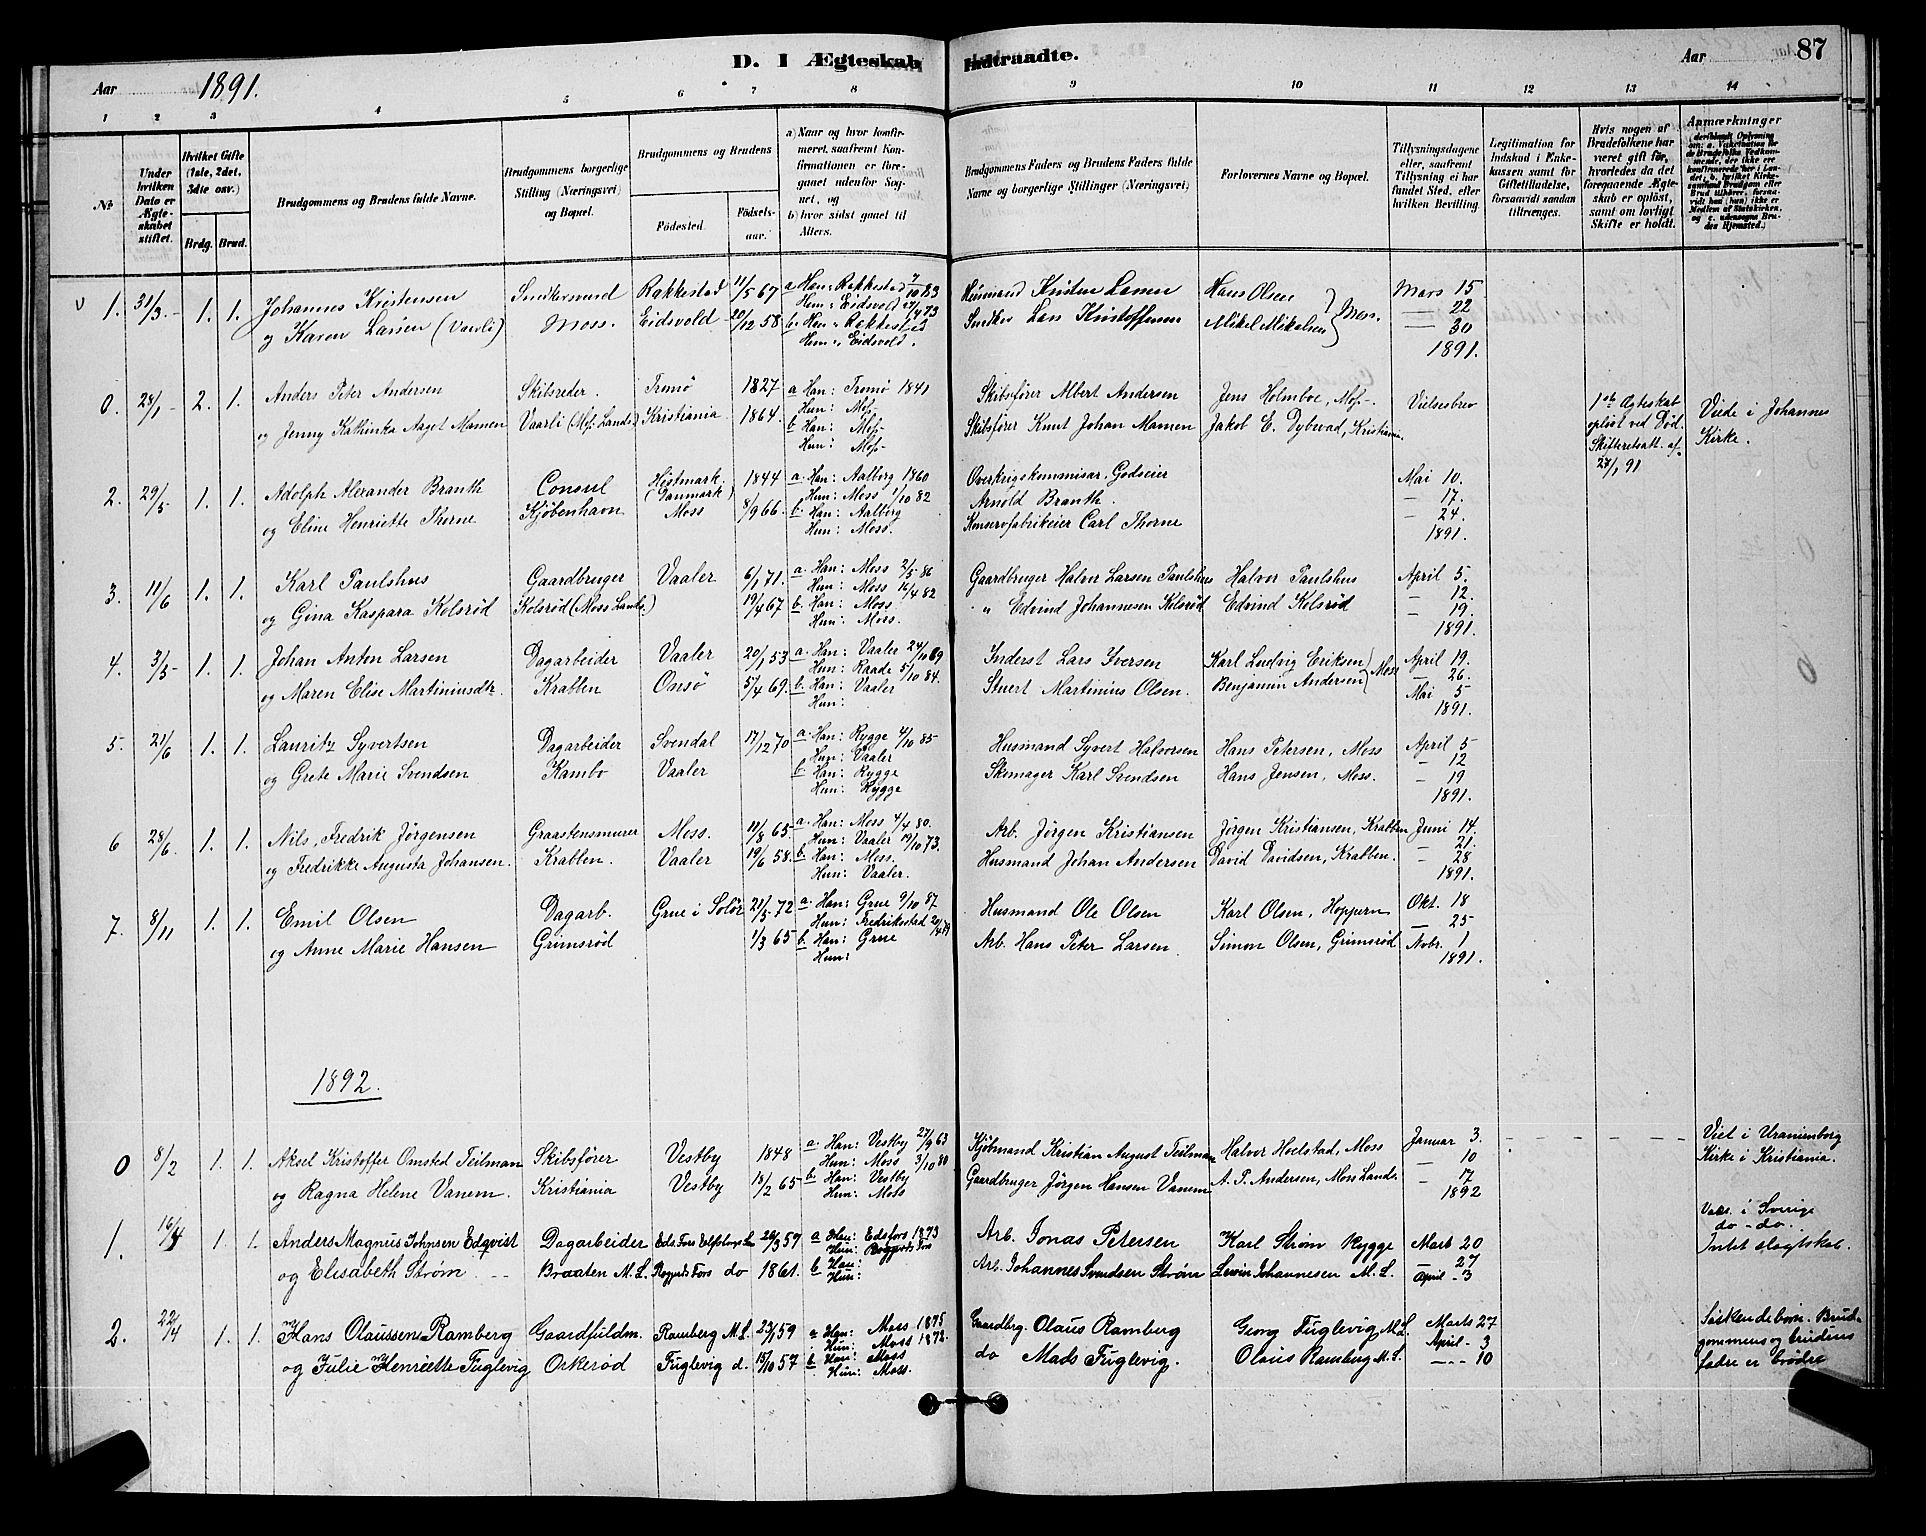 D. I Ægteskab Indtraadte.
87
Aar 1891.
Aar
1 2 3 4 5 6 7 8 9 10 11 12 13 14
No
Under hvilken Dato er Ægteskabet stiftet.
Hvilket Gifte (1ste, 2det, 3dte osv.)
Brdg. Brud.
Brudgommens og Brudens fulde Navne.
Brudgommens borgerlige Stilling (Næringsvei) og Bopæl.
Brudgommens og Brudens
Födested. Födselsaar.
a) Naar og hvor konfirmeret, saafremt Konfirmationen er foregaaet udenfor Sognet, og
b) hvor sidst gaaet til Alters.
Brudgommens Faders og Brudens Faders fulde Navne og borgerlige Stillinger (Næringsvei)
Forlovernes Navne og Bopæl.
Tillysningsdagene eller, saafremt Tillysning ei har fundet Sted, efter hvilken Bevilling.
Legitimation for Indskud i Enkekassen samt for Giftetilladelse, forsaavidt saadan tiltrænges.
Hvis nogen af Brudefolkene har været gift før, hvorledes da det foregaaende Ægteskab er oplöst, samt om lovligt Skifte er holdt.
Anmærkninger
1. 31/3 - 1. 1. Johannes Kristensen Snedkersvend Rakkestad 11/5 67 a Han: Rakkestad 7/10 83 Husmand Kristen Larsen Hans Olsen Mars 15
og Karen Larsen (Vaarli) Moss. Eidsvold 20/12 58 Hun: Eidsvold 27/4 73 Snedker Lars Kristoffersen Mikel Mikalsen } Moss. — 22
b Han: Rakkestad — 30
Hun: Eidsvold. 1891.
0. 28/1 - 2. 1. Anders Peter Andersen Skibsreder. Tromö 1827 a Han: Tromö 1841 Skibsfører Albert Andersen Jens Holmboe, Moss. Vielsesbrev 1ste Ægteskab opløst ved Död. Skifteretsatt. af 27/1 91 Viede i Johannes Kirke.
og Jenny Kathinka Aaget Mamen Vaarli (Moss Lands.) Kristiania 1864. Hun: Moss Skibsfører Knut Johan Mamen Jakob E. Dybwad, Kristiania.
b Han: Moss
Hun: Moss
2. 29/5 1. 1. Adolph Alexander Branth Consul Höstmark (Danmark) 1844 a Han: Aalborg 1860 Overkrigskommisær, Godseier Mai 10.
og Eline Henriette Thorne Kjöbenhavn Moss 8/9 66. Hun: Moss 1/10 82 Arnold Branth. — 17.
b Han: Aalborg Konservefabrikeier Carl Thorne — 24.
Hun: Moss. 1891.
3. 11/6 1. 1. Karl Paulshus Gaardbruger Vaaler 6/1 71. a Han: Moss 2/5 86 Gaardbruger Halvor Larsen Paulshus Halvor Paulshus April 5.
og Gina Kaspara Kolsrød Kolsrød (Moss Lands.) 19/4 67 Hun: Moss 16/4 82 " Edvind Johannesen Kolsröd Edvind Kolsröd — 12.
b Han: Moss — 19.
Hun: Moss. 1891.
4. 3/5 - 1. 1. Johan Anton Larsen Dagarbeider Vaaler 20/1 53 a Han: Vaaler 24/10 69 Inderst Lars Iversen Karl Ludvig Eriksen } Moss April 19.
og Maren Elise Martiniusdtr. Krabben Onsö 5/4 69. Hun: Raade 5/10 84. Stuert Martinius Olsen. Benjamin Andersen — 26.
b Han: Vaaler Mai 5
Hun: 1891.
5. 21/6 1. 1. Lauritz Syvertsen Dagarbeider Svendal 17/12 70 a Han: Rygge 4/10 85 Husmand Syvert Halvorsen Hans Petersen, Moss April 5
og Grete Marie Svendsen Kambo Vaaler Hun: Vaaler Skomager Karl Svendsen Hans Jensen, Moss. — 12
b Han: Rygge — 19
Hun: Rygge 1891.
6 28/6 1. 1. Nils Fredrik Jörgensen Graastensmurer Moss. 11/8 65 a Han: Moss 4/4 80. Arb. Jörgen Kristiansen Jörgen Kristiansen, Krabben Juni 14.
og Fredrikke Augusta Johansen. Krabben. Vaaler 19/6 58. Hun: Vaaler 19/10 73. Husmand Johan Andersen David Davidsen, Krabben. — 21.
b Han: Moss. — 28
Hun: Vaaler. 1891.
7. 8/11 1. 1. Emil Olsen Dagarb. Grue i Solör 21/5 72 a Han: Grue 9/10 87 Husmand Ole Olsen Karl Olsen, Hoppern Okt. 18
og Anne Marie Hansen Grimsröd 1/3 65 Hun: Fredriksstad Arb. Hans Peter Larsen Simon Olsen, Grimsröd — 25
b Han: Grue Novbr. 1
Hun: 1891.
1892.
0 8/2 1. 1. Aksel Kristoffer Omsted Teilman Skibsförer Vestby 1848 a Han: Vestby 27/9 63 Kjöbmand Kristian August Teilman Halvor Hoelstad, Moss Januar 3. Viet i Uranienborg Kirke i Kristiania.
og Ragna Helene Vanem. Kristiania Vestby 18/2 65 Hun: Moss 3/10 80 Gaardbruger Jörgen Hansen Vanem A. P. Andersen, Moss Lands. — 10
b Han: Vestby — 17
Hun: Moss 1892
1. 16/4 1. 1. Anders Magnus Johnsen Edqvist Dagarbeider Eds Fors 26/3 57 a Han: Edsfors 1873 Arb. Jonas Petersen Karl Strøm Rygge Mart 20 Vacc. i Sverige do-do. Intet slagtskab.
og Elisabeth Strøm Braaten M.L. do 1861. Hun: Arb. Johannes Svendsen Strøm Johannesen M.L. — 27
b Han: April - 3
Hun:
2. 22/4 1. 1. Hans Olaussen Ramberg Gaardfuldm. Ramberg M.L. 23/1 59 a Han: Moss 1875 Gaardbrg. Olaus Ramberg Georg Fuglevig M.L. Marts 27 Söskendebørn. Brudgommens og brudens fadre er brödre
og Julie Henriette Fuglevig Orkerød Fuglevig d. 15/10 57 Hun: Moss 1872. do Mads Fuglevig. Olaus Ramberg M.L. April - 3
b Han: Moss --- 10
Hun: Moss.